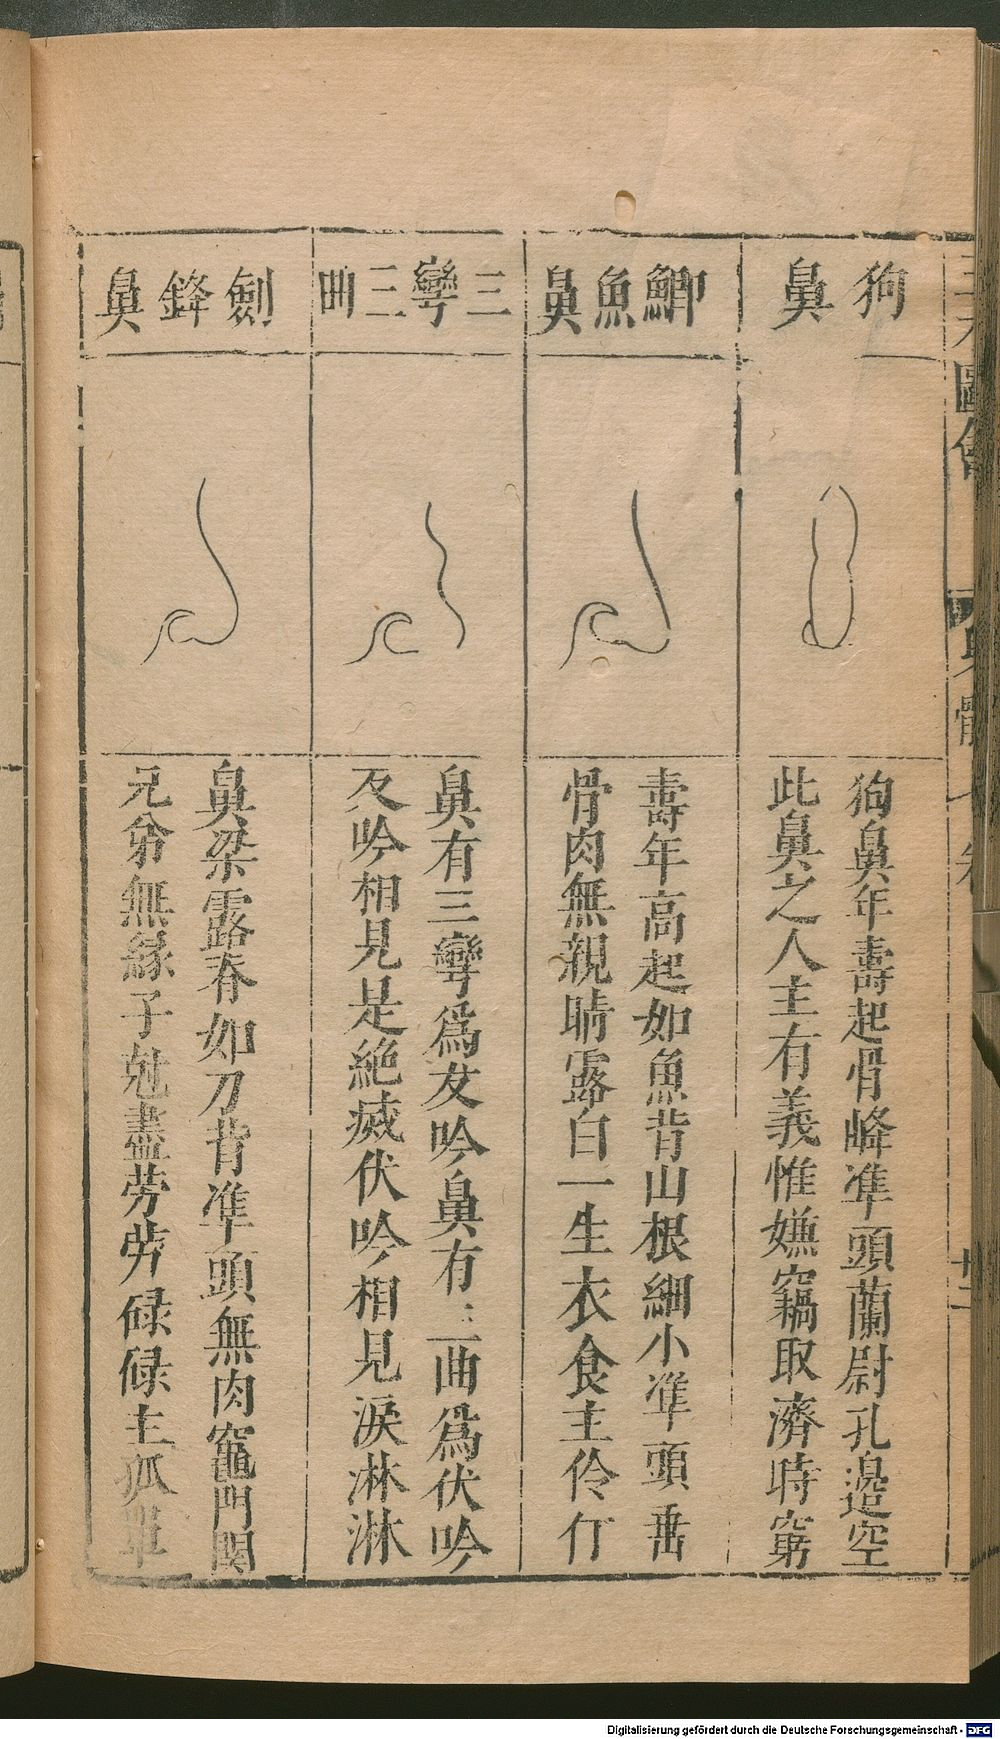 狗鼻
狗鼻年壽起骨峰凖頭蘭尉孔邉空
此鼻之人主有義惟嫌竊取濟時窮
鯽魚鼻
壽年高起如魚背山根細小凖頭垂
骨肉無親睛露白一生衣食主伶仃
三彎三曲
鼻有三彎爲反吟鼻有三曲爲伏吟
反吟相見是絶滅伏吟相見淚淋淋
劍鋒鼻
鼻梁露脊如刀背凖頭無肉竈門関
兄弟無縁子尅盡劳劳碌碌主孤單
圖會
身體七卷
廿二
Digitalisierung gefördert durch die Deutsche Forschungsgemeinschaft - DFG